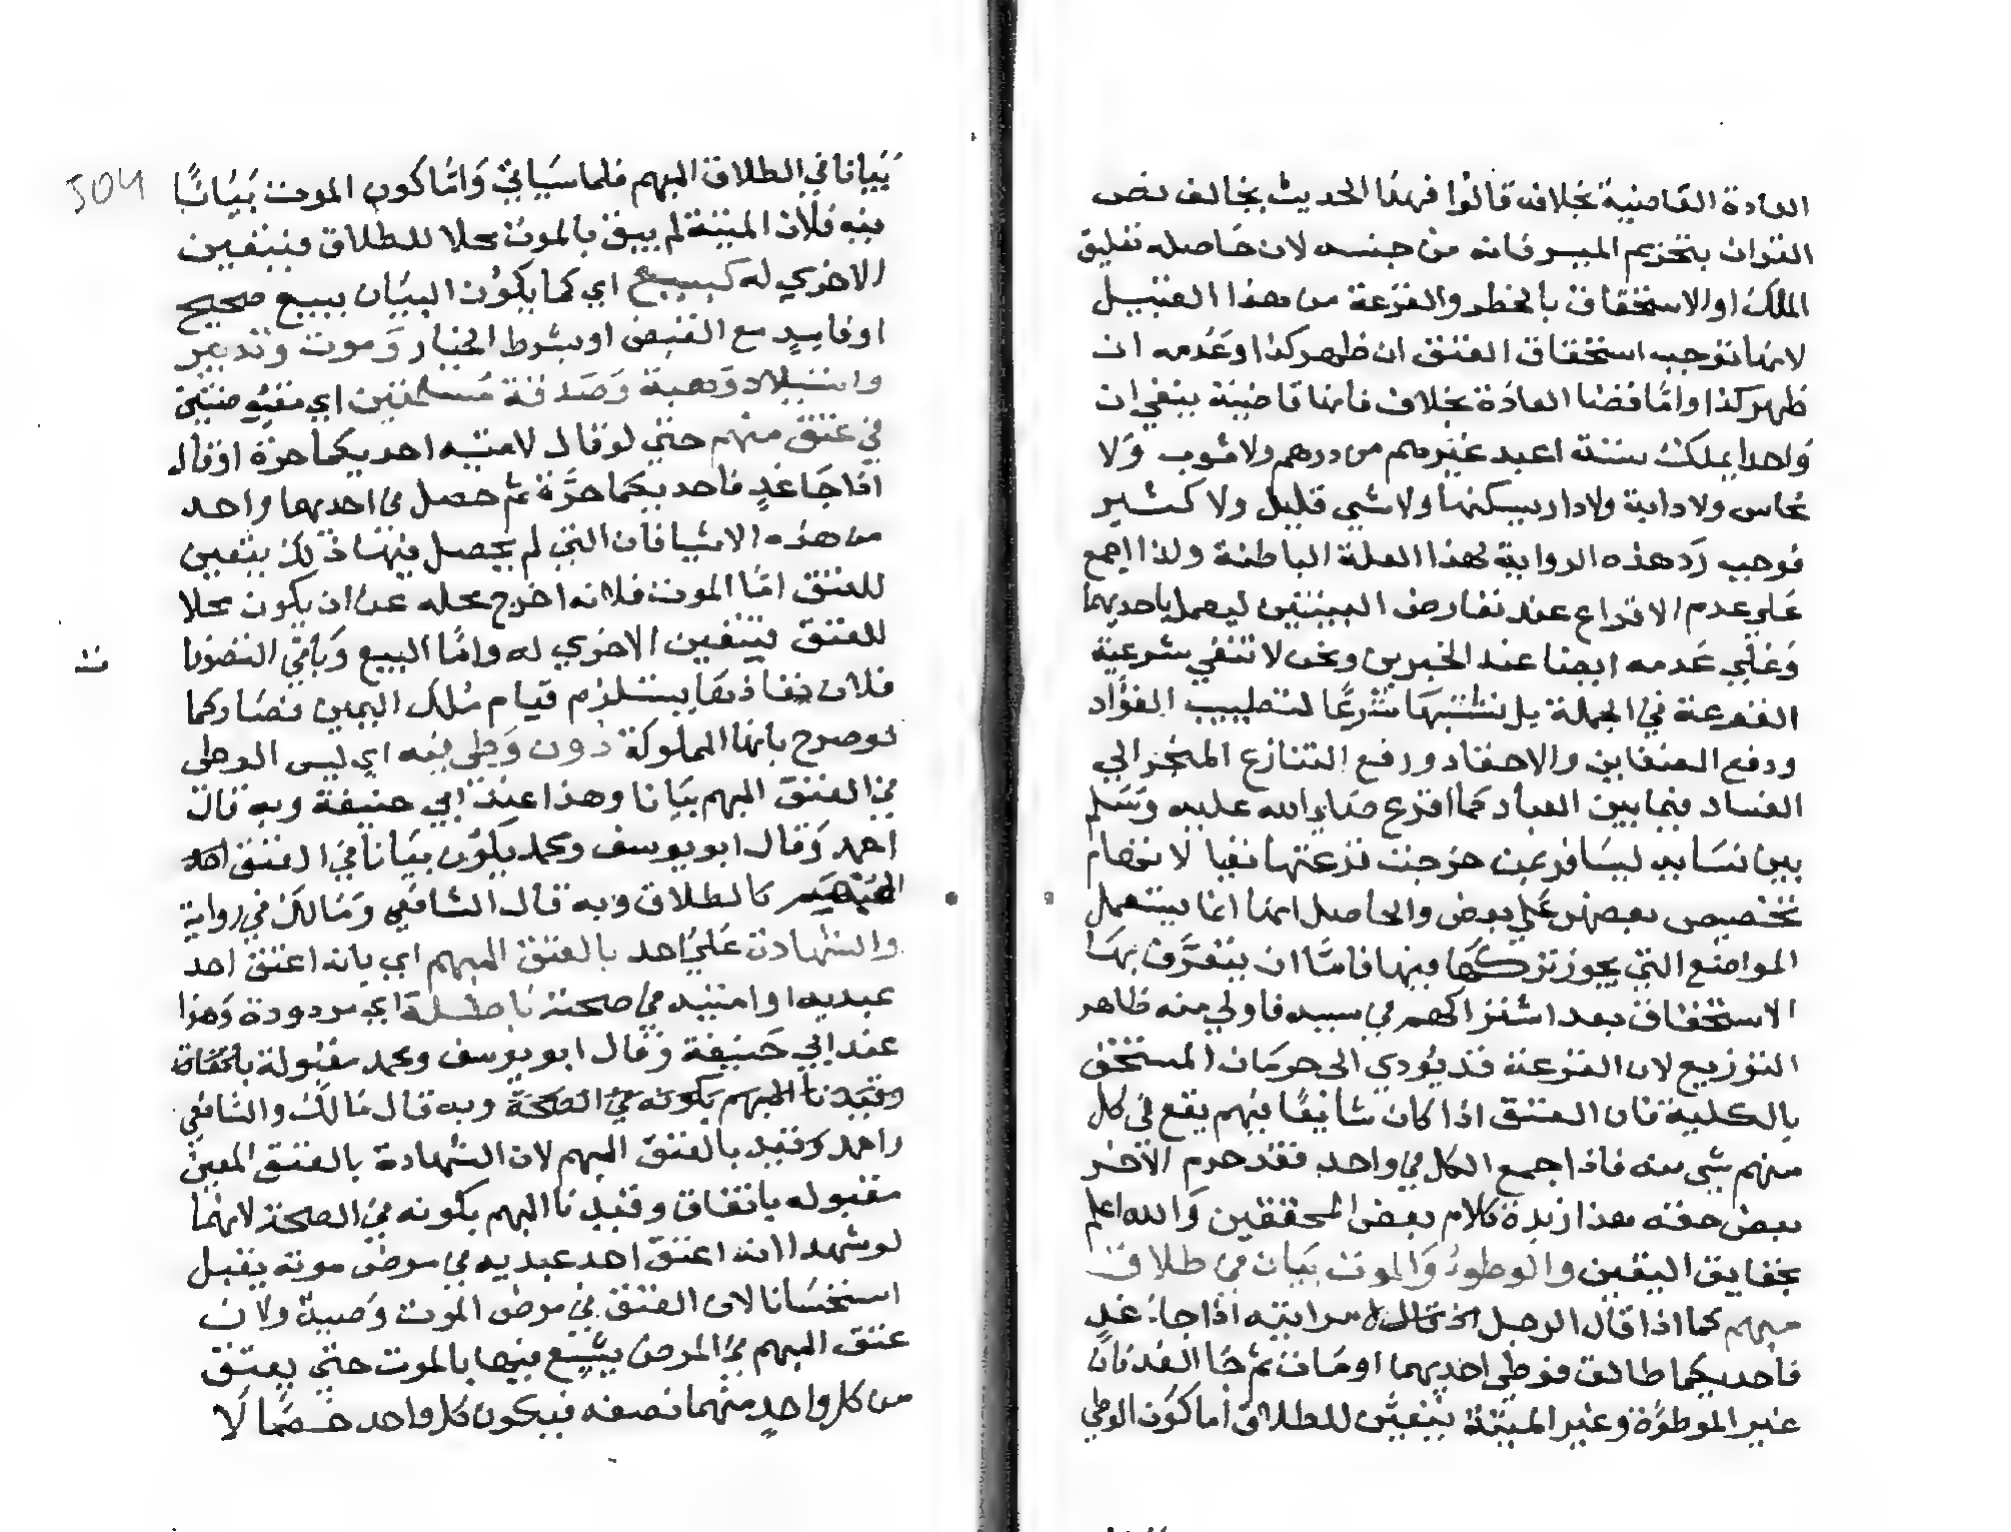 العادة القاضية بخلاف قالوا فهذا الحديث يخالف نص
القران بتحريم الميسر فانه من جنسه لان حاصله تعليق
الملك او الاستحقاق بالخطر والقرعة من هذا القبيل
لانها توجب استحقاق العتق ان ظهر كذا وعدمه ان
ظهر كذا واما قضا العادة بخلاف فانها قاضية بنفي ان
واحدا يملك ستة اعبد غيرهم من درهم ولا ثوب ولا
نحاس ولا دابة ولا دار يسكنها ولا شي قليل ولا كثير
فوجب رد هذه الرواية لهذا العلة الباطنة ولذا اجمع
على عدم الاقراع عند تعارض البينتين ليعمل باحديهما
وعلى عدمه ايضا عند الخبرين ونحن لا ننفي شرعية
القرعة في الجملة بل نثبتها شرعا لتطييب الفؤاد
ودفع الضغاين والاحقاد ورفع التنازع المنجر الى
الفساد فيما بين العباد كما اقرع صلى الله عليه وسلم
بين نسايه ليسافر بمن خرجت قرعتها نفيا لاتهام
تخصيص بعضهن على بعض والحاصل انها انما يستعمل
المواضع التي يجوز تركها فيها فاما ان يتعرف بها
الاستحقاق بعد اشتراكهم في سببه فاولى منه ظاهر
التوزيع لان القرعة قد يؤدي الى حرمان المستحق
بالكلية فان العتق اذا كان شايعا فيهم يقع في كل
منهم شي منه فاذا جمع الكل في واحد فقد حرم الآخر
بعض حقه هذا زبدة كلام بعض المحققين والله اعلم
بحقايق اليقين والوطؤ والموت بيان في طلاق
مبهم كما اذا قال الرجل امراتيه اذا جاء غد
فاحديكما طالق فوطى احديهما او ماتت ثم جا الغد فان
غير الموطؤة وغير الميتة يتعين للطلاق أما كون الوطى
504
بيانا في الطلاق المبهم فلما سيأتي وَاما كون الموت بَيانًا
فيه فلان الميتة لم يبق بالموت محلا للطلاق فيتعين
الاخرى له كبيع اي كما يكون البيان ببيع صحيح
او فاسد مع القبض او بشرط الخيار وَموت وتدبير
واستيلاد وَهبة وَصدقة مُسلمتين اي مقبوضتين
في عتق مبهم حتى لو قال لامتيه احديكما حرة او قال
اذا جا غد فاحديكما حرَّة ثم حصل في احديهما واحد
من هذه الاشيا فان التي لم يحصل فيها ذلك يتعين
للعتق امَّا الموت فلانه اخرج محله عن ان يكون محلا
للعتق فيتعين الاخرى له وامَّا البيع وَباقي التصرفا
فلان نفاذها يستلزم قيام ملك اليمين فصَار كما
لو صرح بانها المملوكة دون وَطى فيه اي ليس الوطى
في العتق المبهم بيانا وهذا عند ابي حنيفة وبه قال
احمد وَقال ابو يوسف ومحمد يكون بيانا في العتق
المبهم كالطلاق وبه قال الشافعي وَمالك في رواية
والشهادة على احد بالعتق المبهم اي بانه اعتق احد
عبديه او امتيه في صحته باطلة اي مردودة وَهذا
عند ابي حَنيفة وَقال ابو يوسف ومحمد مقبولة باتفاق
وقيدنا المبهم بكونه في الصحة وبه قال مالك والشافعي
واحمد وَقيد بالعتق المبهم لان الشهادة بالعتق المعين
مقبوله باتفاق وقيدنا المبهم بكونه في الصحة لانهما
لو شهدا انه اعتق احد عبديه في مرض موته يقبل
استحسانا لان العتق في مرض الموت وَصية ولان
عتق المبهم في المرض يشيع فيها بالموت حتى يعتق
من كل واحد منهما نصفه فيكون كل واحد خصما لا